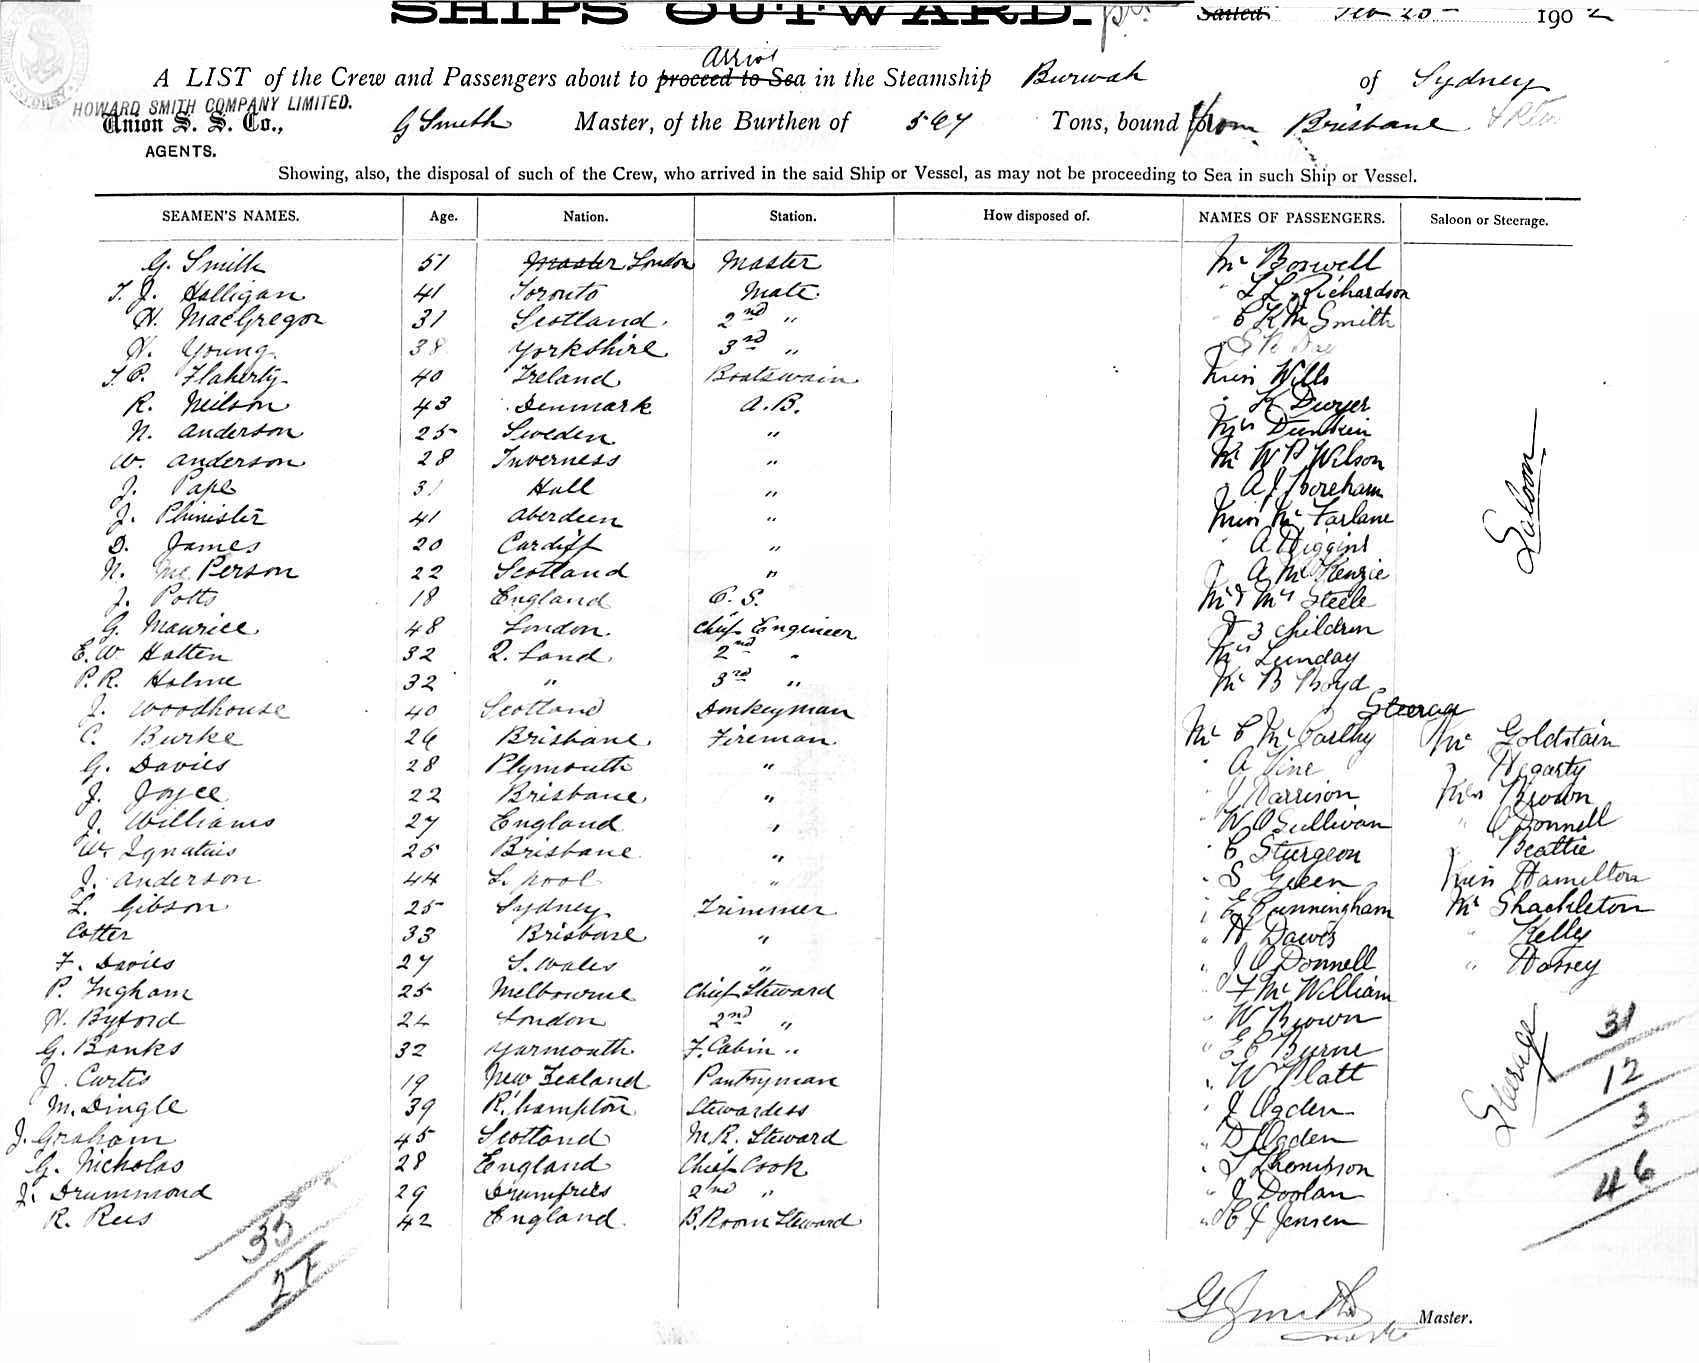 SHIPS OUTWARD. Sailed Feb 25 1902
Arrive
A LIST of the Crew and Passengers about to proceed to Sea in the Steamship Burwah of Sydney
HOWARD SMITH COMPANY LIMITED.
Union S. S. Co., G Smith Master, of the Burthen of 597 Tons, bound from Brisbane
AGENTS.
Showing, also, the disposal of such of the Crew, who arrived in the said Ship or Vessel, as may not be proceeding to Sea in such Ship or Vessel.
SEAMEN'S NAMES. Age. Nation. Station. How disposed of. NAMES OF PASSENGERS. Saloon or Steerage.
G. Smith 51 Master London Master Mr Boswell
T. J. Halligan 41 Toronto Mate " L L Richardson
H. MacGregor 31 Scotland 2nd " " C K M Smith
H. Young 38 Yorkshire 3rd "
T. P. Flaherty 40 Ireland Boatswain Miss Wills
R. Neilson 43 Denmark A.B. " K Dwyer
N. Anderson 25 Sweden " Mrs Dunkin
W. Anderson 28 Inverness " Mr W P Wilson
J. Pape 31 Hull " " A J Boreham
J. Phinister 41 Aberdeen " Miss McFarlane
D. James 20 Cardiff " " A Higgins
N. McPerson 22 Scotland " " A McKenzie
J. Potts 18 England O.S. Mr & Mrs Steele
G. Mawrice 48 London Chief Engineer & 3 Children
E. W Hatten 32 Q. Land 2nd " Mrs Lunday
P. R. Holme 32 " 3rd " Mr B Boyd
Saloon
J. Woodhouse 40 Scotland Donkeyman Steerage
C. Burke 26 Brisbane Fireman Mr C McCarthy Mr Goldstain
G. Davies 28 Plymouth " " A Vine " Hegarty
J. Joyce 22 Brisbane " " J Harrison Mrs Brown
J. Williams 27 England " " W O Sullivan " O Donnell
W. Ignatius 25 Brisbane " " C Sturgeon " Beattie
J. Anderson 44 L. pool " " S Green Miss Hamilton
L. Gibson 25 Sydney Trimmer " E Bunningham Mr Shackleton
Cotter 33 Brisbane " " H Dawes " Kelly
F. Davies 27 S. Wales " " J O Donnell "
P. Ingham 25 Melbourne Chief Steward " F McWilliam
H. Byford 24 London 2nd " " W Brown
G. Banks 32 Yarmouth F. Cabin " " E C Burne
J. Curtis 19 New Zealand Pantryman " W Platt
M. Dingle 39 R'hampton Stewardess " J Ogden
J. Graham 45 Scotland M.R. Steward " D Ogden
G. Nicholas 28 England Chief Cook " Thompson
J. Drummond 29 Drumfries 2nd " " J Doolan
R. Rees 42 England B. Room Steward " C J Jensen
Steerage
31
12
3
46
35
27
G Smith Master.